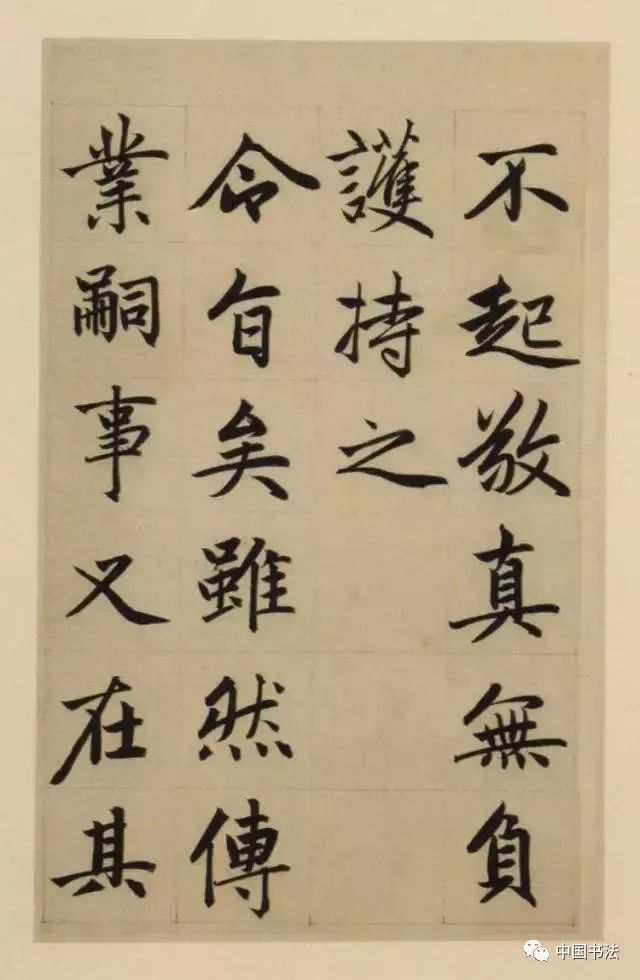 不起敬真無負
護持之
令旨矣雖然傳
業嗣事又在其
中国书法